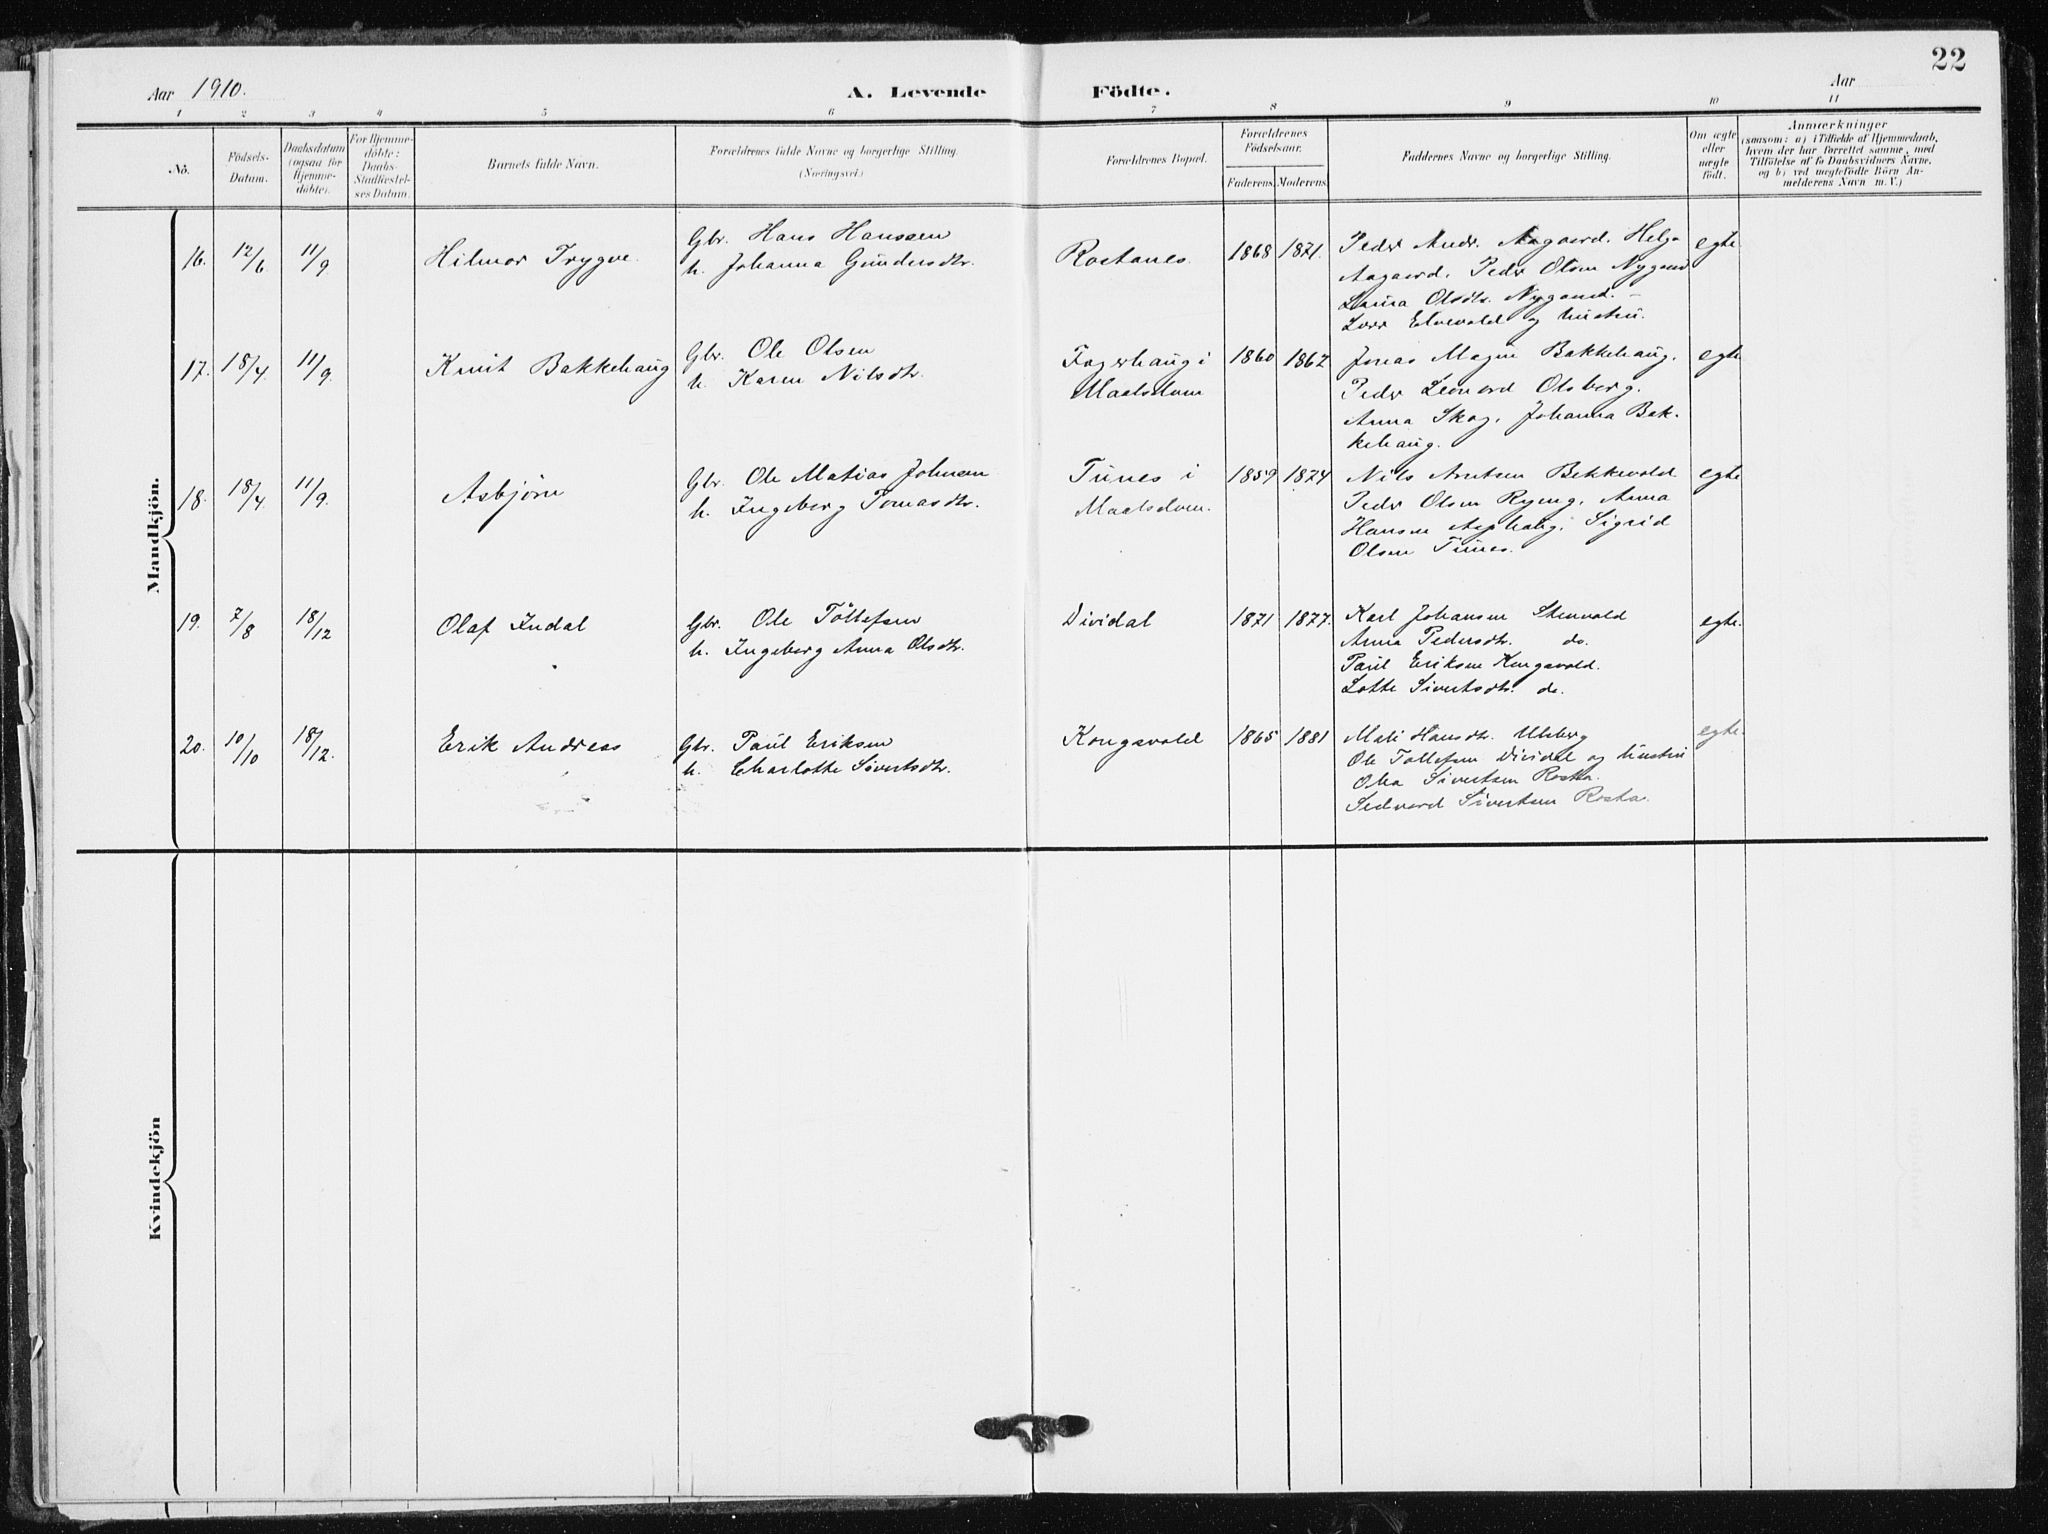 22
Aar 1910.
A. Levende Födte.
Aar
1 2 3 4 5 6 7 8 9 10 11
No.
Födsels-
Datum.
Daabsdatum
(ogsaa for
Hjemme-
döbte).
For Hjemme-
döbte:
Daabs
Stadfæstel-
ses Datum.
Barnets fulde Navn.
Forældrenes fulde Navne og borgerlige Stilling.
(Næringsvei.)
Forældrenes Bopæl.
Forældrenes
Födselsaar.
Faderens. Moderens.
Faddernes Navne og borgerlige Stilling.
Om ægte
eller
uægte
födt.
Anmærkninger
(saasom: a) i Tilfælde af Hjemmedaab,
hvem der har forrettet samme, med
Tilföielse af to Daabsvidners Navne,
og b) ved uægtefödte Börn An-
melderens Navn m. V.)
Mandkjön.
16. 12/6 11/9 Hilmor Trygve.
Gbr. Hans Hanssen
h. Johanna Gundersdtr.
Rostanes. 1868 1871.
Peder Andr. Aagaard. Helga
Aagaard. Peder Olsen Nygaard
Laura Olsdtr. Nygaard. –
Lars Elvevold og hustru.
egte
17. 18/4 11/9. Knut Bakkehaug
Gbr. Ole Olsen
h. Karen Nilsdtr.
Fagerhaug i
Maalsdalen
1860 1862
Jonas Magnu Bakkehaug.
Peder Leonard Olsberg.
Anna Skog. Johanna Bak-
kehaug.
egte
18. 18/4 11/9. Asbjörn
Gbr. Ole Matias Johnsen
h. Ingeberg Tomasdtr.
Tunes i
Maalsdalen.
1859 1874
Nils Arntsen Bakkevold
Peder Olsen Ryeng. Anna
Hansen Asphaug. Sigrid
Olsen Tunes.
egte
19. 7/8 18/12 Olaf Indal
Gbr. Ole Töllefsen
h. Ingeberg Anna Olsdtr.
Dividal 1871 1877.
Karl Johansen Stenvold
Anna Pedersdtr. do.
Paul Eriksen Kongsvold.
Lotte Sivertsdtr. do.
egte.
20. 10/10 18/12. Erik Andreas
Gbr. Paul Eriksen
h. Charlotte Sivertsdtr.
Kongsvold 1865 1881
Mali Hansdtr. Ulsberg
Ole Tollefsen Dividal og hustru
Olea Sivertsen Rosta.
Sedvard Sivertsen Rosta.
egte.
Kvindekjön